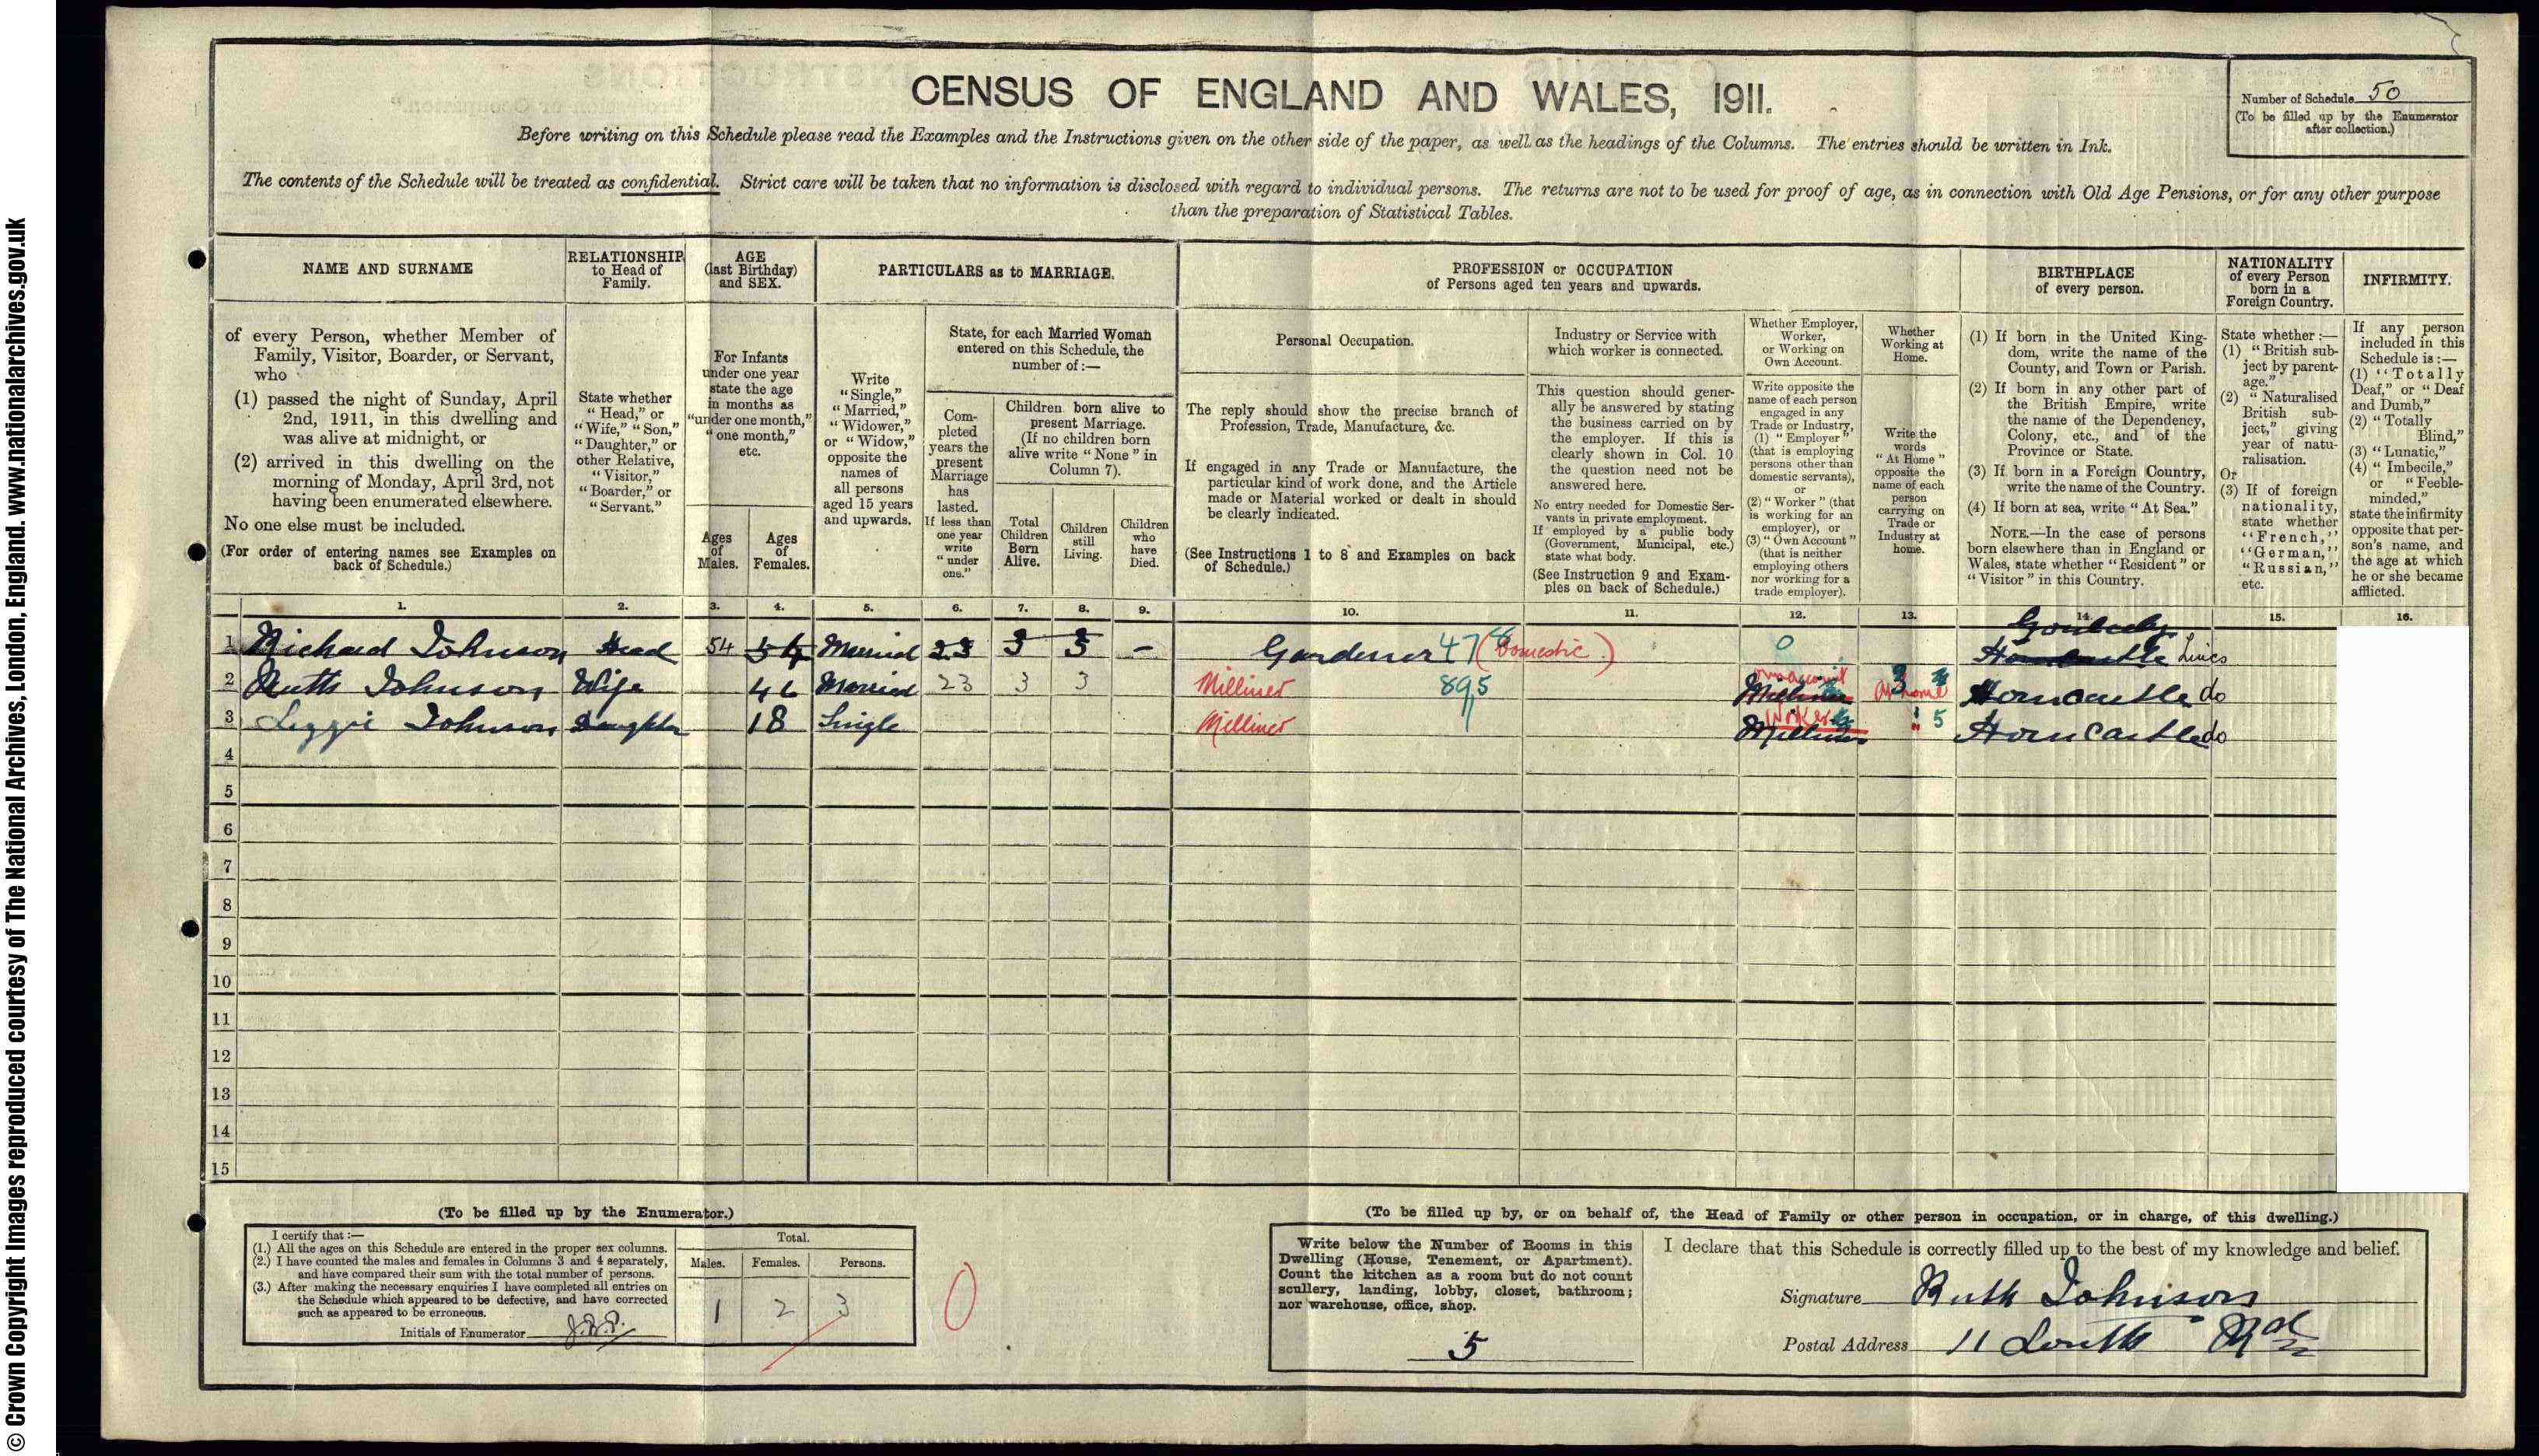 © Crown Copyright Images reproduced courtesy of The National Archives, London, England. www.nationalarchives.gov.uk
CENSUS OF ENGLAND AND WALES, 1911.
Number of Schedule 50
(To be filled up by the Enumerator
after collection.)
Before writing on this Schedule please read the Examples and the Instructions given on the other side of the paper, as well as the headings of the Columns. The entries should be written in Ink.
The contents of the Schedule will be treated as confidential. Strict care will be taken that no information is disclosed with regard to individual persons. The returns are not to be used for proof of age, as in connection with Old Age Pensions, or for any other purpose
than the preparation of Statistical Tables.
NAME AND SURNAME
of every Person, whether Member of
Family, Visitor, Boarder, or Servant,
who
(1) passed the night of Sunday, April
2nd, 1911, in this dwelling and
was alive at midnight, or
(2) arrived in this dwelling on the
morning of Monday, April 3rd, not
having been enumerated elsewhere.
No one else must be included.
(For order of entering names see Examples on
back of Schedule.)
RELATIONSHIP
to Head of
Family.
State whether
"Head," or
"Wife," "Son,"
"Daughter," or
other Relative,
"Visitor,"
"Boarder," or
"Servant."
AGE
(last Birthday)
and SEX.
For Infants
under one year
state the age
in months as
"under one month,"
"one month,"
etc.
Ages
of
Males.
Ages
of
Females.
PARTICULARS as to MARRIAGE.
Write
"Single,"
"Married,"
"Widower,"
or "Widow,"
opposite the
names of
all persons
aged 15 years
and upwards.
State, for each Married Woman
entered on this Schedule, the
number of:—
Com-
pleted
years the
present
Marriage
has
lasted.
If less than
one year
write
"under
one."
Children born alive to
present Marriage.
(If no children born
alive write "None" in
Column 7).
Total
Children
Born
Alive.
Children
still
Living.
Children
who
have
Died.
PROFESSION or OCCUPATION
of Persons aged ten years and upwards.
Personal Occupation.
The reply should show the precise branch of
Profession, Trade, Manufacture, &c.
If engaged in any Trade or Manufacture, the
particular kind of work done, and the Article
made or Material worked or dealt in should
be clearly indicated.
(See Instructions 1 to 8 and Examples on back
of Schedule.)
Industry or Service with
which worker is connected.
This question should gener-
ally be answered by stating
the business carried on by
the employer. If this is
clearly shown in Col. 10
the question need not be
answered here.
No entry needed for Domestic Ser-
vants in private employment.
If employed by a public body
(Government, Municipal, etc.)
state what body.
(See Instruction 9 and Exam-
ples on back of Schedule.)
Whether Employer,
Worker,
or Working on
Own Account.
Write opposite the
name of each person
engaged in any
Trade or Industry,
(1) "Employer"
(that is employing
persons other than
domestic servants),
or
(2) "Worker" (that
is working for an
employer), or
(3) "Own Account"
(that is neither
employing others
nor working for a
trade employer).
Whether
Working at
Home.
Write the
words
"At Home"
opposite the
name of each
person
carrying on
Trade or
Industry at
home.
BIRTHPLACE
of every person.
(1) If born in the United King-
dom, write the name of the
County, and Town or Parish.
(2) If born in any other part of
the British Empire, write
the name of the Dependency,
Colony, etc., and of the
Province or State.
(3) If born in a Foreign Country,
write the name of the Country.
(4) If born at sea, write "At Sea."
NOTE.—In the case of persons
born elsewhere than in England or
Wales, state whether "Resident" or
"Visitor" in this Country.
NATIONALITY
of every Person
born in a
Foreign Country.
State whether :—
(1) "British sub-
ject by parent-
age."
(2) "Naturalised
British sub-
ject," giving
year of natu-
ralisation.
Or
(3) If of foreign
nationality,
state whether
"French,"
"German,"
"Russian,"
etc.
INFIRMITY.
If any person
included in this
Schedule is :—
(1) "Totally
Deaf," or "Deaf
and Dumb,"
(2) "Totally
Blind,"
(3) "Lunatic,"
(4) "Imbecile,"
or "Feeble-
minded,"
state the infirmity
opposite that per-
son's name, and
the age at which
he or she became
afflicted.
1. 2. 3. 4. 5. 6. 7. 8. 9. 10. 11. 12. 13. 14. 15. 16.
1 Richard Johnson Head 54 54 Married 23 3 3 – Gardener 478 (Domestic) 0 Horncastle Lincs
2 Ruth Johnson Wife 46 Married 23 3 3 Milliner 895 Own account Milliner At home 3 Horncastle do
3 Lizzie Johnson Daughter 18 Single Milliner Worker Milliner " 5 Horncastle do
4
5
6
7
8
9
10
11
12
13
14
15
(To be filled up by the Enumerator.)
I certify that :—
(1.) All the ages on this Schedule are entered in the proper sex columns.
(2.) I have counted the males and females in Columns 3 and 4 separately,
and have compared their sum with the total number of persons.
(3.) After making the necessary enquiries I have completed all entries on
the Schedule which appeared to be defective, and have corrected
such as appeared to be erroneous.
Initials of Enumerator
Total.
Males. Females. Persons.
1 2 3
0
(To be filled up by, or on behalf of, the Head of Family or other person in occupation, or in charge, of this dwelling.)
Write below the Number of Rooms in this
Dwelling (House, Tenement, or Apartment).
Count the kitchen as a room but do not count
scullery, landing, lobby, closet, bathroom;
nor warehouse, office, shop.
5
I declare that this Schedule is correctly filled up to the best of my knowledge and belief.
Signature Ruth Johnson
Postal Address 11 Louth Rd